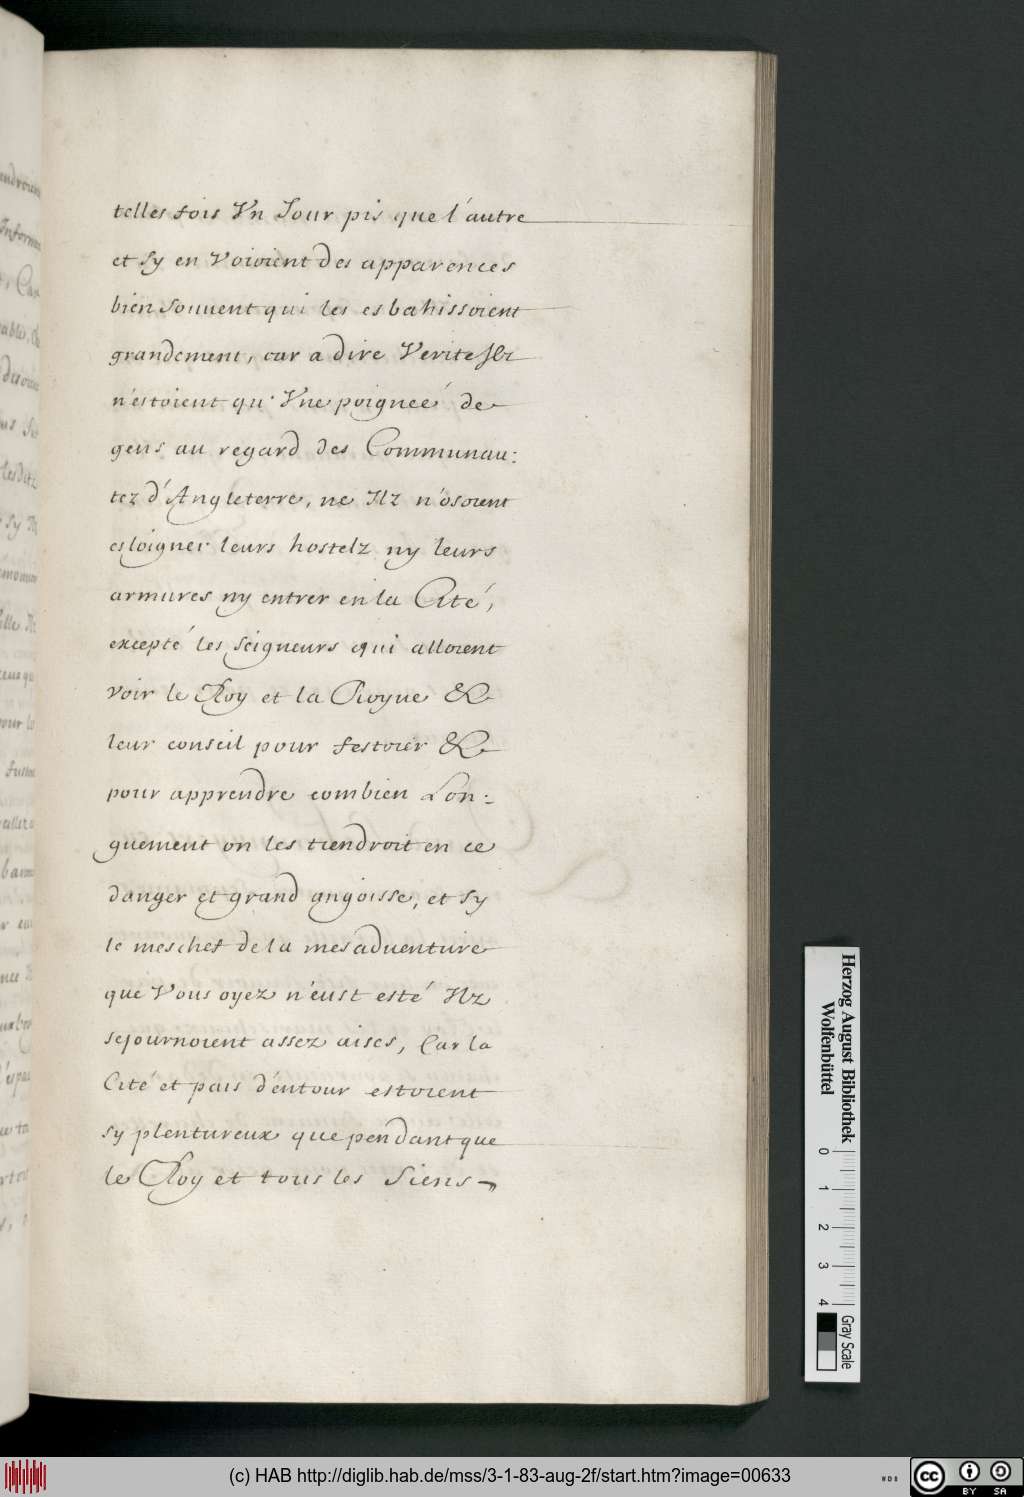 telles fois Vn Jour pis que l'autre
et sy en Voivient des apparences
bien souuent qui les esbahissoient
grandement, car a dire Verite Ilz
n'estoient qu'Vne poigneé de
gens au regard des Communau:
tez d'Angleterre, ne Ilz n'osoient
esloigner leurs hostelz ny leurs
armures ny entrer en la Cité,
excepté les seigneurs qui alloient
voir le Roy et la Royne &
leur conseil pour festoier &
pour apprendre combien Lon:
guement on les tiendroit en ce
danger et grand angoisse, et sy
le meschef de la mesaduenture
que Vous oyez n'eust esté Ilz
sejournoient assez aises, Car la
Cité et païs d'entour estoient
sy plentureux que pendant que
le Roy et tous les Siens
Herzog August Bibliothek
Wolfenbüttel
0 1 2 3 4
Gray Scale
(c) HAB http://diglib.hab.de/mss/3-1-83-aug-2f/start.htm?image=00633
WDB
cc BY SA